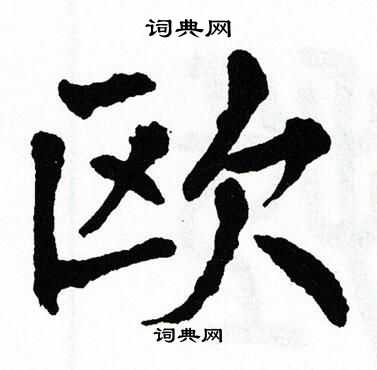 词典网
欧
词典网